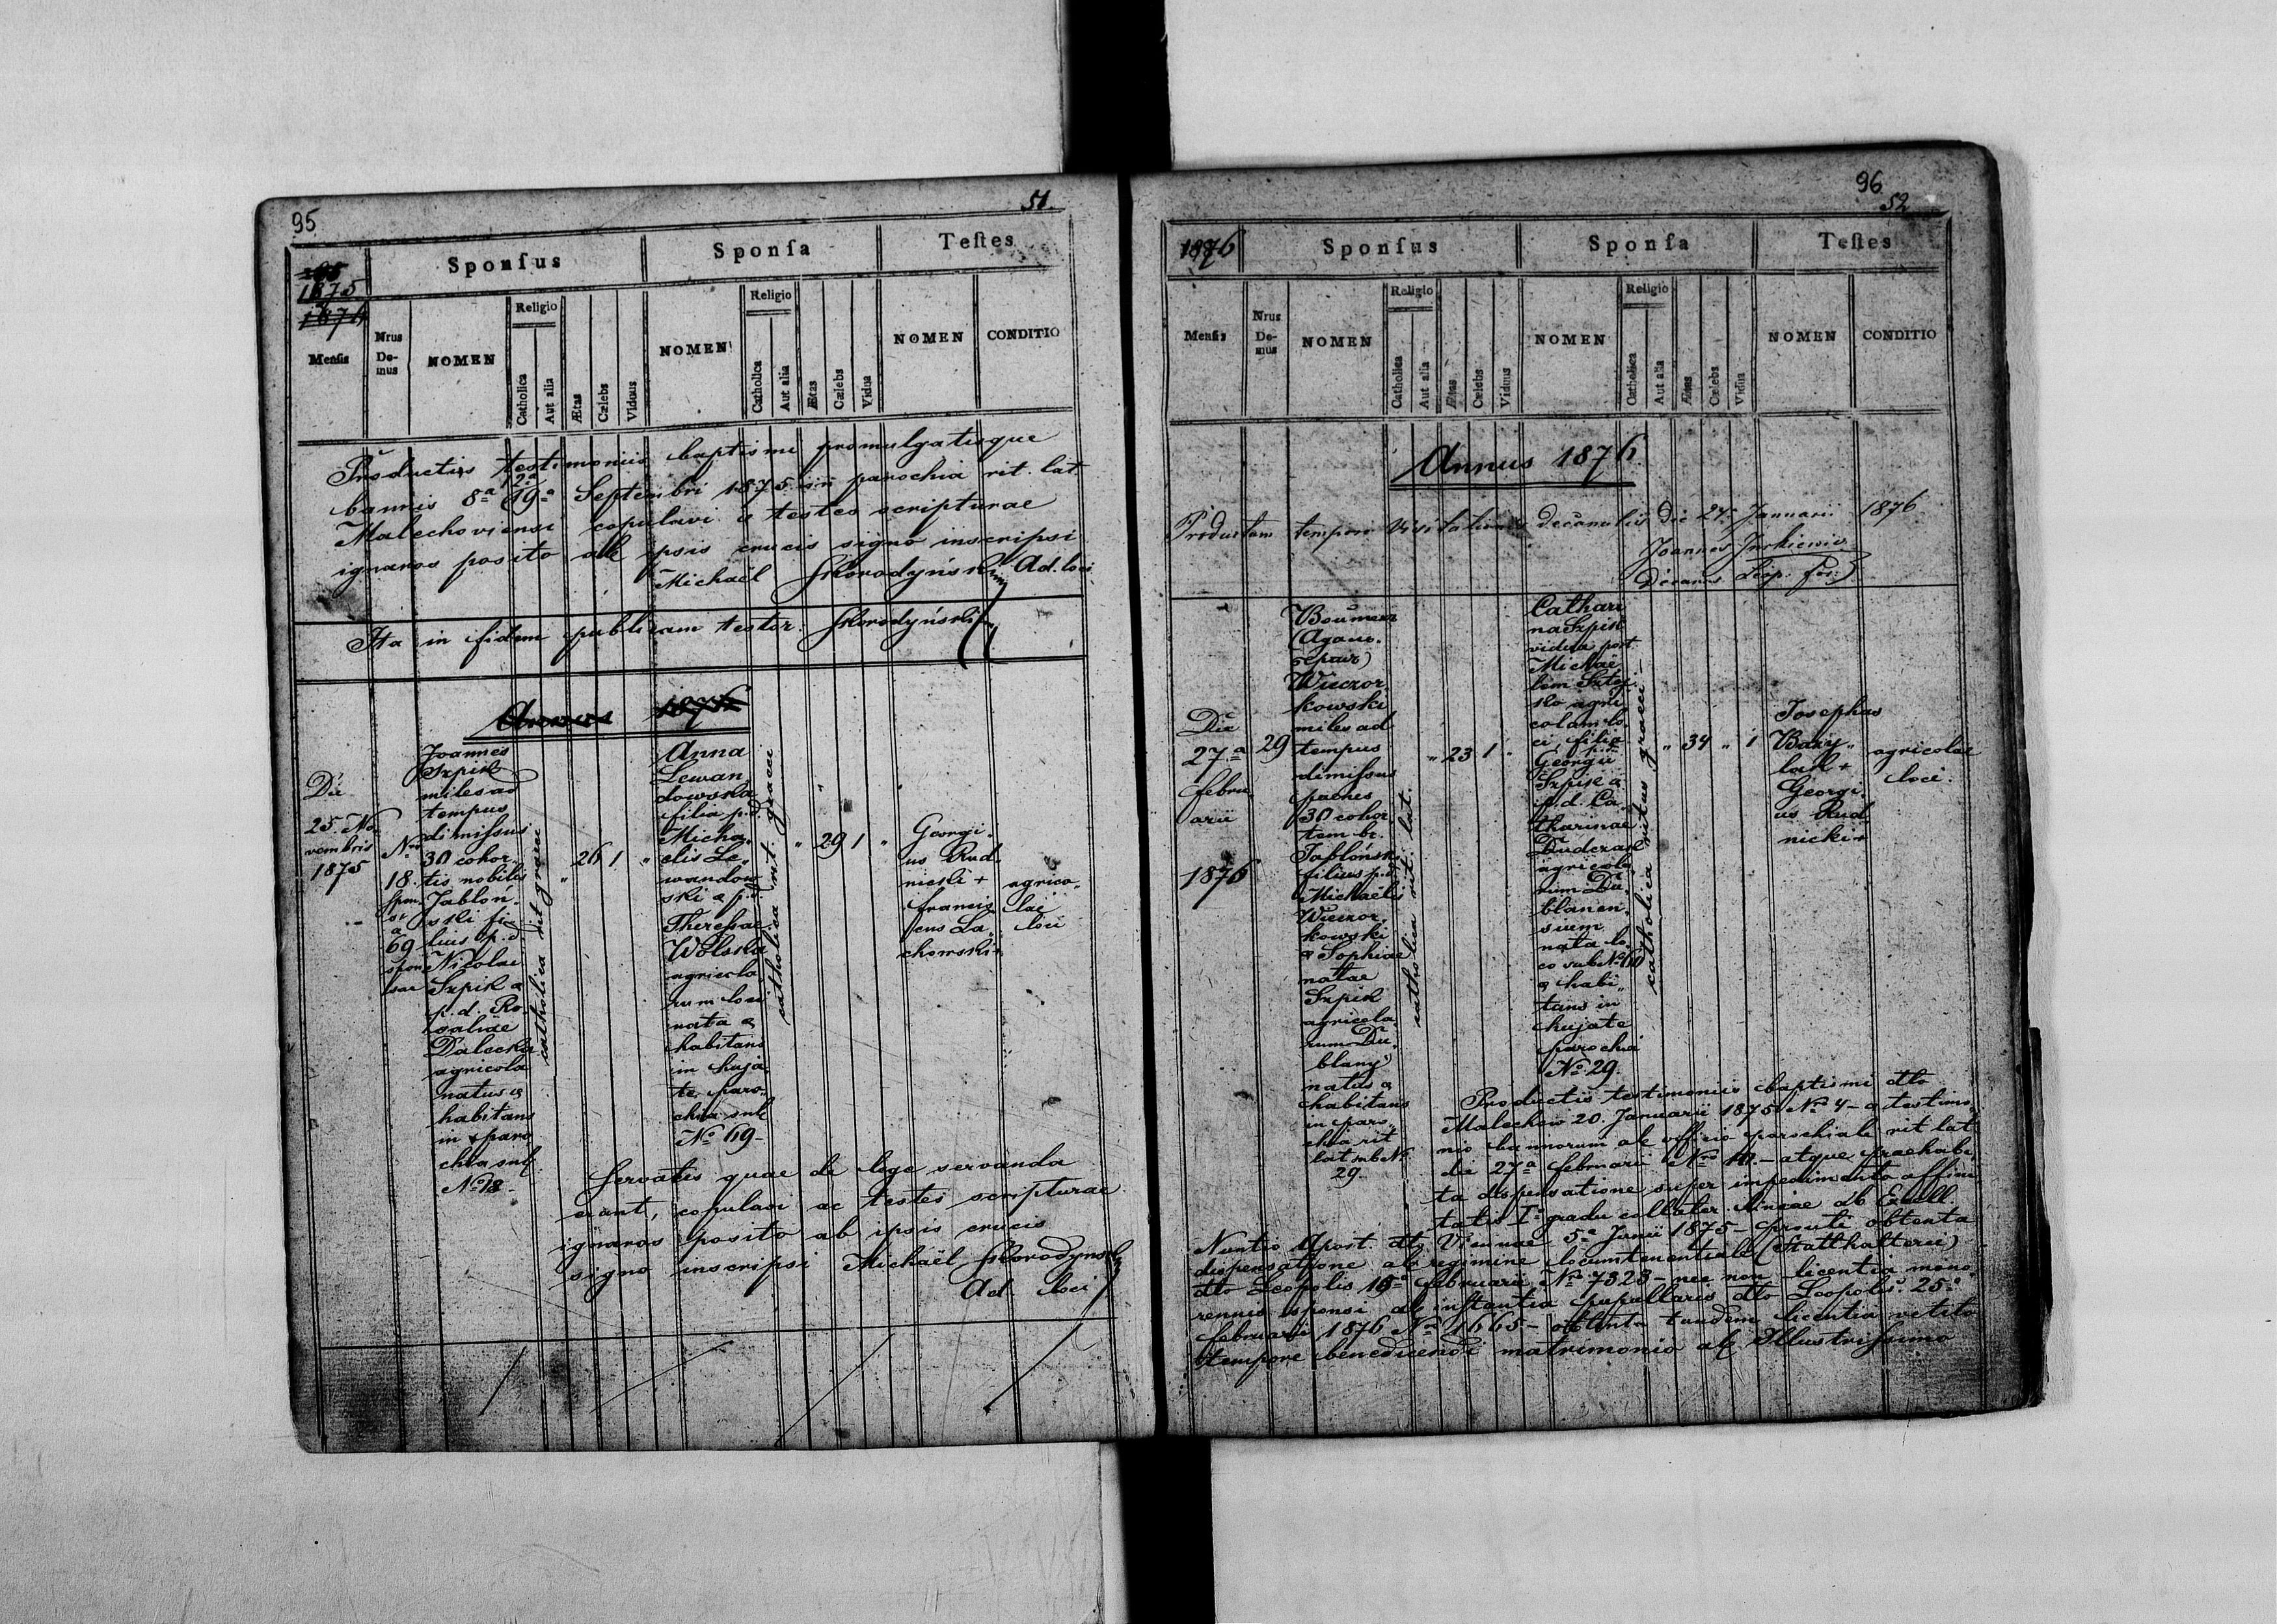 95
51.
Sponſus
Sponſa
Teſtes
1875
1876
Menſis
Nrus Do-mus
NOMEN
Religio
Catholica
Aut alia
Ætas
Cælebs
Viduus
NOMEN
Religio
Catholica
Aut alia
Ætas
Cælebs
Vidua
NOMEN
CONDITIO
Productis testimoniis baptismi promulgatisque
bannis 8ª 12ª 19ª Septembri 1875 in parochia rit. lat.
Malechoviensi copulavi a testes scripturae
ignaros posito ab ipsis crucis signo inscripsi
Michaël Skorodyński Ad. loci
Ita in fidem publicam testor. Skorodyński
Annus 1876
Die
25. No
vembris
1875
Nro
18.
spon
si
a
69
spon
sae
Joannes
Szpik
miles ad
tempus
dimiſsus
30 cohor
tis nobilis
Jabłoń
ski fi
lius p.d.
Nicolai
Szpik a
p.d. Ro
saliae
Dalecka
agricola
natus a
habitans
in paro
chia sub
No 18
catholica rit. graeci
" 26 1 "
Anna
Lewan
dowska
filia p.d.
Micha
elis Le
wandow
ski a p.d.
Thereſsae
Wolska
agricola
rum loci
nata a
habitans
in huja
te paro
chia sub
No 69
catholica rit. graeci
" 29 1 "
Georgi
us Rud
nicki +
Francis
cus La
chowski +
agrico
lae
loci
Servatis quae de lege servanda
erant, copulavi ac testes scripturae
ignaros posito ab ipsis crucis
signo inscripsi Michaël Skorodyński
Ad. loci
96
52
1876
Sponſus
Sponſa
Teſtes
Menſis
Nrus Do-mus
NOMEN
Religio
Catholica
Aut alia
Ætas
Cælebs
Viduus
NOMEN
Religio
Catholica
Aut alia
Ætas
Cælebs
Vidua
NOMEN
CONDITIO
Annus 1876
Productum tempore visitationis decanalis Die 27 Januarii 1876
Joannes Jurkiewicz
Decanus Leop. for.
Die
27ª
Febru
arii
1876
29
Wieczor
kowski
miles ad
tempus
dimiſsus
penes
30 cohor
tem br.
Jabłońsk
filius p.d.
Michaëlis
Wieczor
kowski
a Sophiae
natae
Szpik
agricola
rum Du
blany
natus a
habitans
in paro
chia rit
lat sub No
29.
catholica rit. lat.
" 23 1 "
Cathari
na Szpik
vidua post
Michaë
lem
agri
colam lo
ci, filia
Georgii
Szpik a
p.d. Ca
tharinae
Duderak
agricola
rum Du
blanen
sium
nata lo
co sub No 60
a habi
tans in
hujate
parochia
No 29.
catholica ritus graeci
" 34 " 1
Josephus
Bazy
lak +
Georgi
us Rud
nicki +
agricolae
loci.
Productis testimoniis baptismi dto
Malechow 20. Januarii 1875 No 4 - a testimo
nio bannorum ab officio parochiali rit lat
die 27ª februarii Nro 10. - atque praehabi
ta dispensatione super impedimento affini
tatis Iº gradu collater. lineae ab Excell.
Nuntio Apost. dto Viennae 5ª Junii 1875 - prouti obtenta
dispensatione ab regimine locumtenentiali (Statthalterei)
dto Leopolis 16ª februarii No 7323 - nec non licentia mino
rennis sponsi ab instantia pupillaris dto Leopolis 25ª
februarii 1876 No 1665 - obtenta tandem licentia vetito
tempore benedicendi matrimonio ab Illustriſsimo